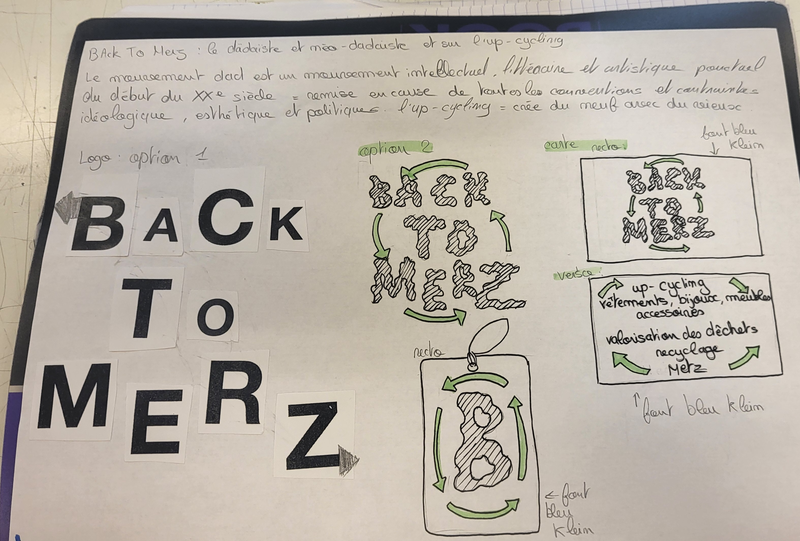 BAck To Merz : le dadaïste et néo-dadaïste et sur l'up-cycling
Le mouvement dad est un mouvement intellectuel, littéraire et artistique ponctuel
du début du XXe siècle = remise en cause de toutes les conventions et contraintes
idéologique, esthétique et politiques. l'up-cycling = crée du neuf avec du vieux
Logo : option 1
BACK
TO
MERZ
option 2
BACK
TO
MERZ
carte recto :
font bleu
klein
BACK
TO
MERZ
verso :
up-cycling
vêtements, bijoux, meubles
accessoires
valorisation des déchets
recyclage
Metz
font bleu klein
recto
B
font
bleu
klein